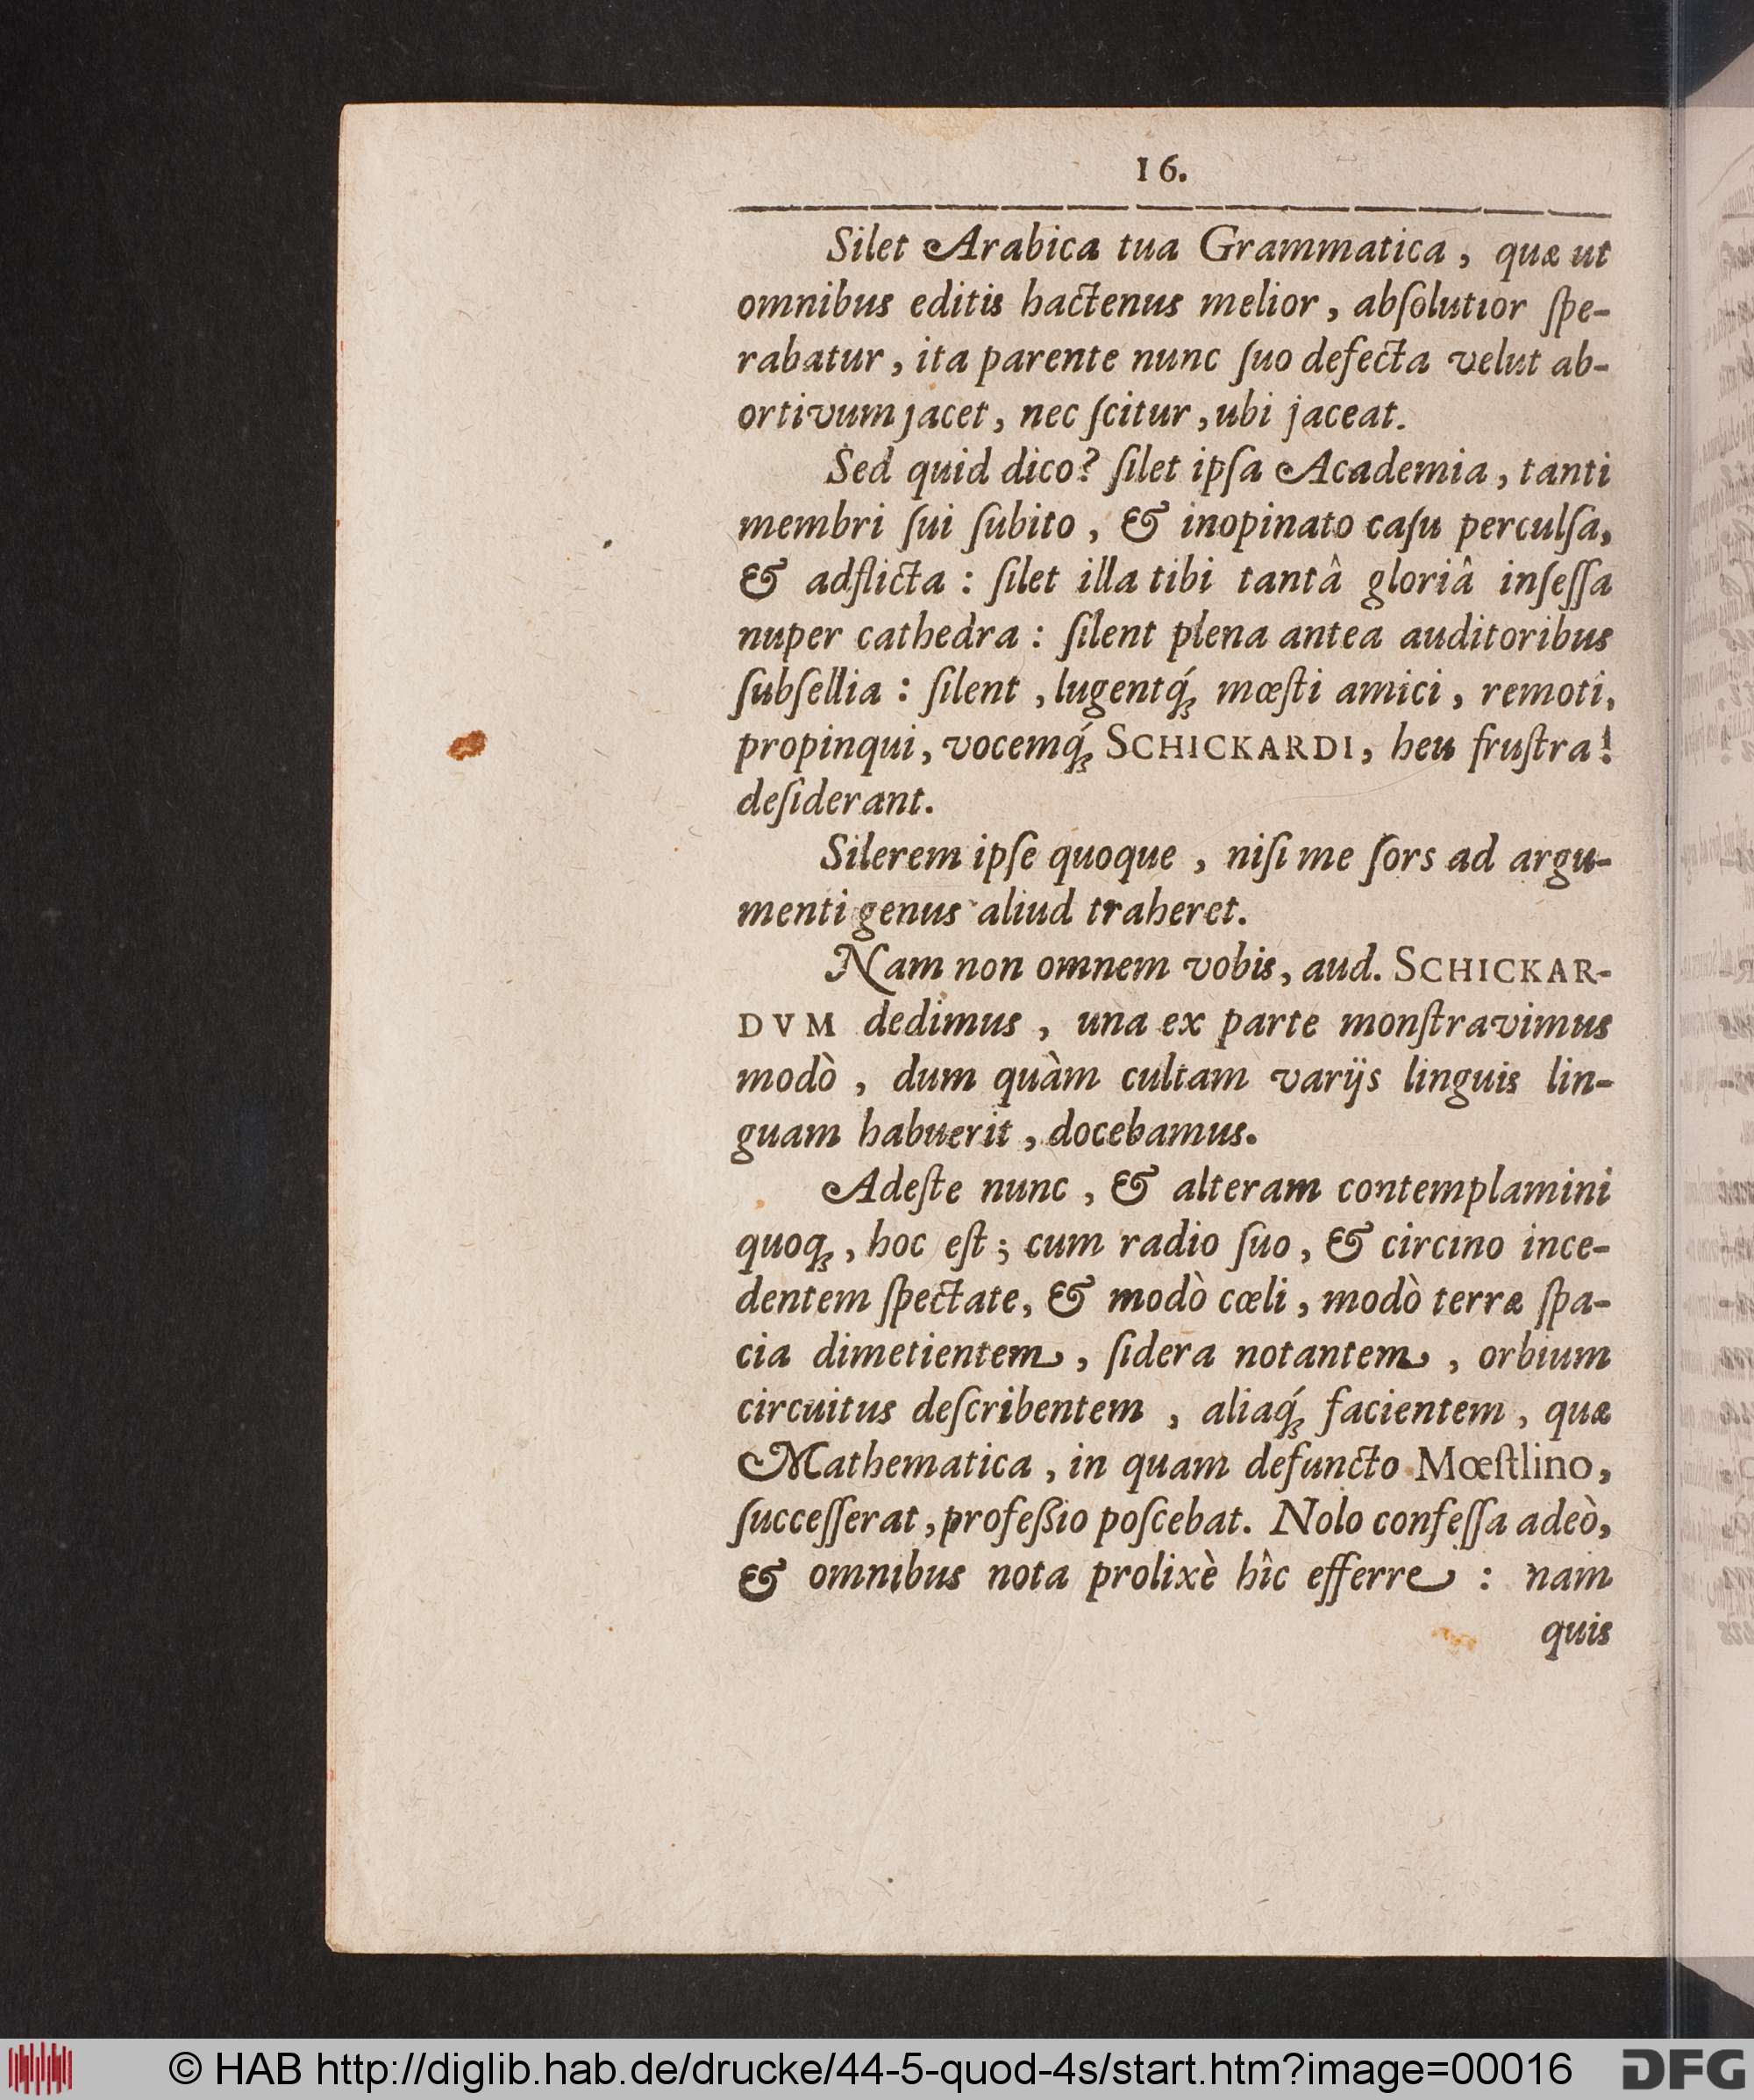 16.
Silet Arabica tua Grammatica, quæ ut
omnibus editis hactenus melior, abſolutior ſpe-
rabatur, ita parente nunc ſuo defecta velut ab-
ortivum jacet, nec ſcitur, ubi jaceat.
Sed quid dico? ſilet ipſa Academia, tanti
membri ſui ſubito, & inopinato caſu perculſa,
& adflicta: ſilet illa tibi tantâ gloriâ inſeſſa
nuper cathedra: ſilent plena antea auditoribus
ſubſellia: ſilent, lugentq́; mœſti amici, remoti,
propinqui, vocemq́; SCHICKARDI, heu fruſtra!
deſiderant.
Silerem ipſe quoque, niſi me ſors ad argu-
menti genus aliud traheret.
Nam non omnem vobis, aud. SCHICKAR-
DVM dedimus, una ex parte monſtravimus
modò, dum quàm cultam varijs linguis lin-
guam habuerit, docebamus.
Adeſte nunc, & alteram contemplamini
quoq;, hoc eſt; cum radio ſuo, & circino ince-
dentem ſpectate, & modò cœli, modò terræ ſpa-
cia dimetientem, ſidera notantem, orbium
circuitus deſcribentem, aliaq́; facientem, quæ
Mathematica, in quam defuncto Mœſtlino,
ſucceſſerat, profeßio poſcebat. Nolo confeſſa adeò,
& omnibus nota prolixè hîc efferre: nam
quis
© HAB http://diglib.hab.de/drucke/44-5-quod-4s/start.htm?image=00016
DFG